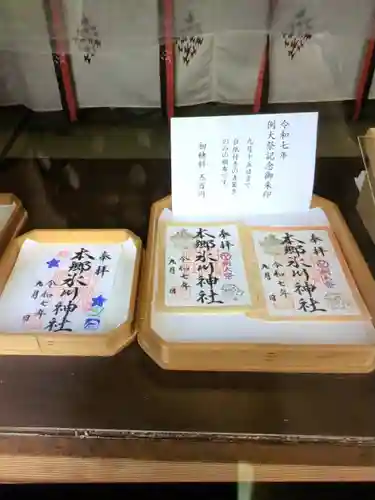 令和七年
例大祭記念御朱印
九月十五日まで
台紙付きの直書き
のみの頒布です。
初穂料 五百円
奉拝
本郷氷川神社
令和七年
九月 日
奉拝
本郷氷川神社
令和七年
九月 日
奉拝
本郷氷川神社
令和七年
九月 日